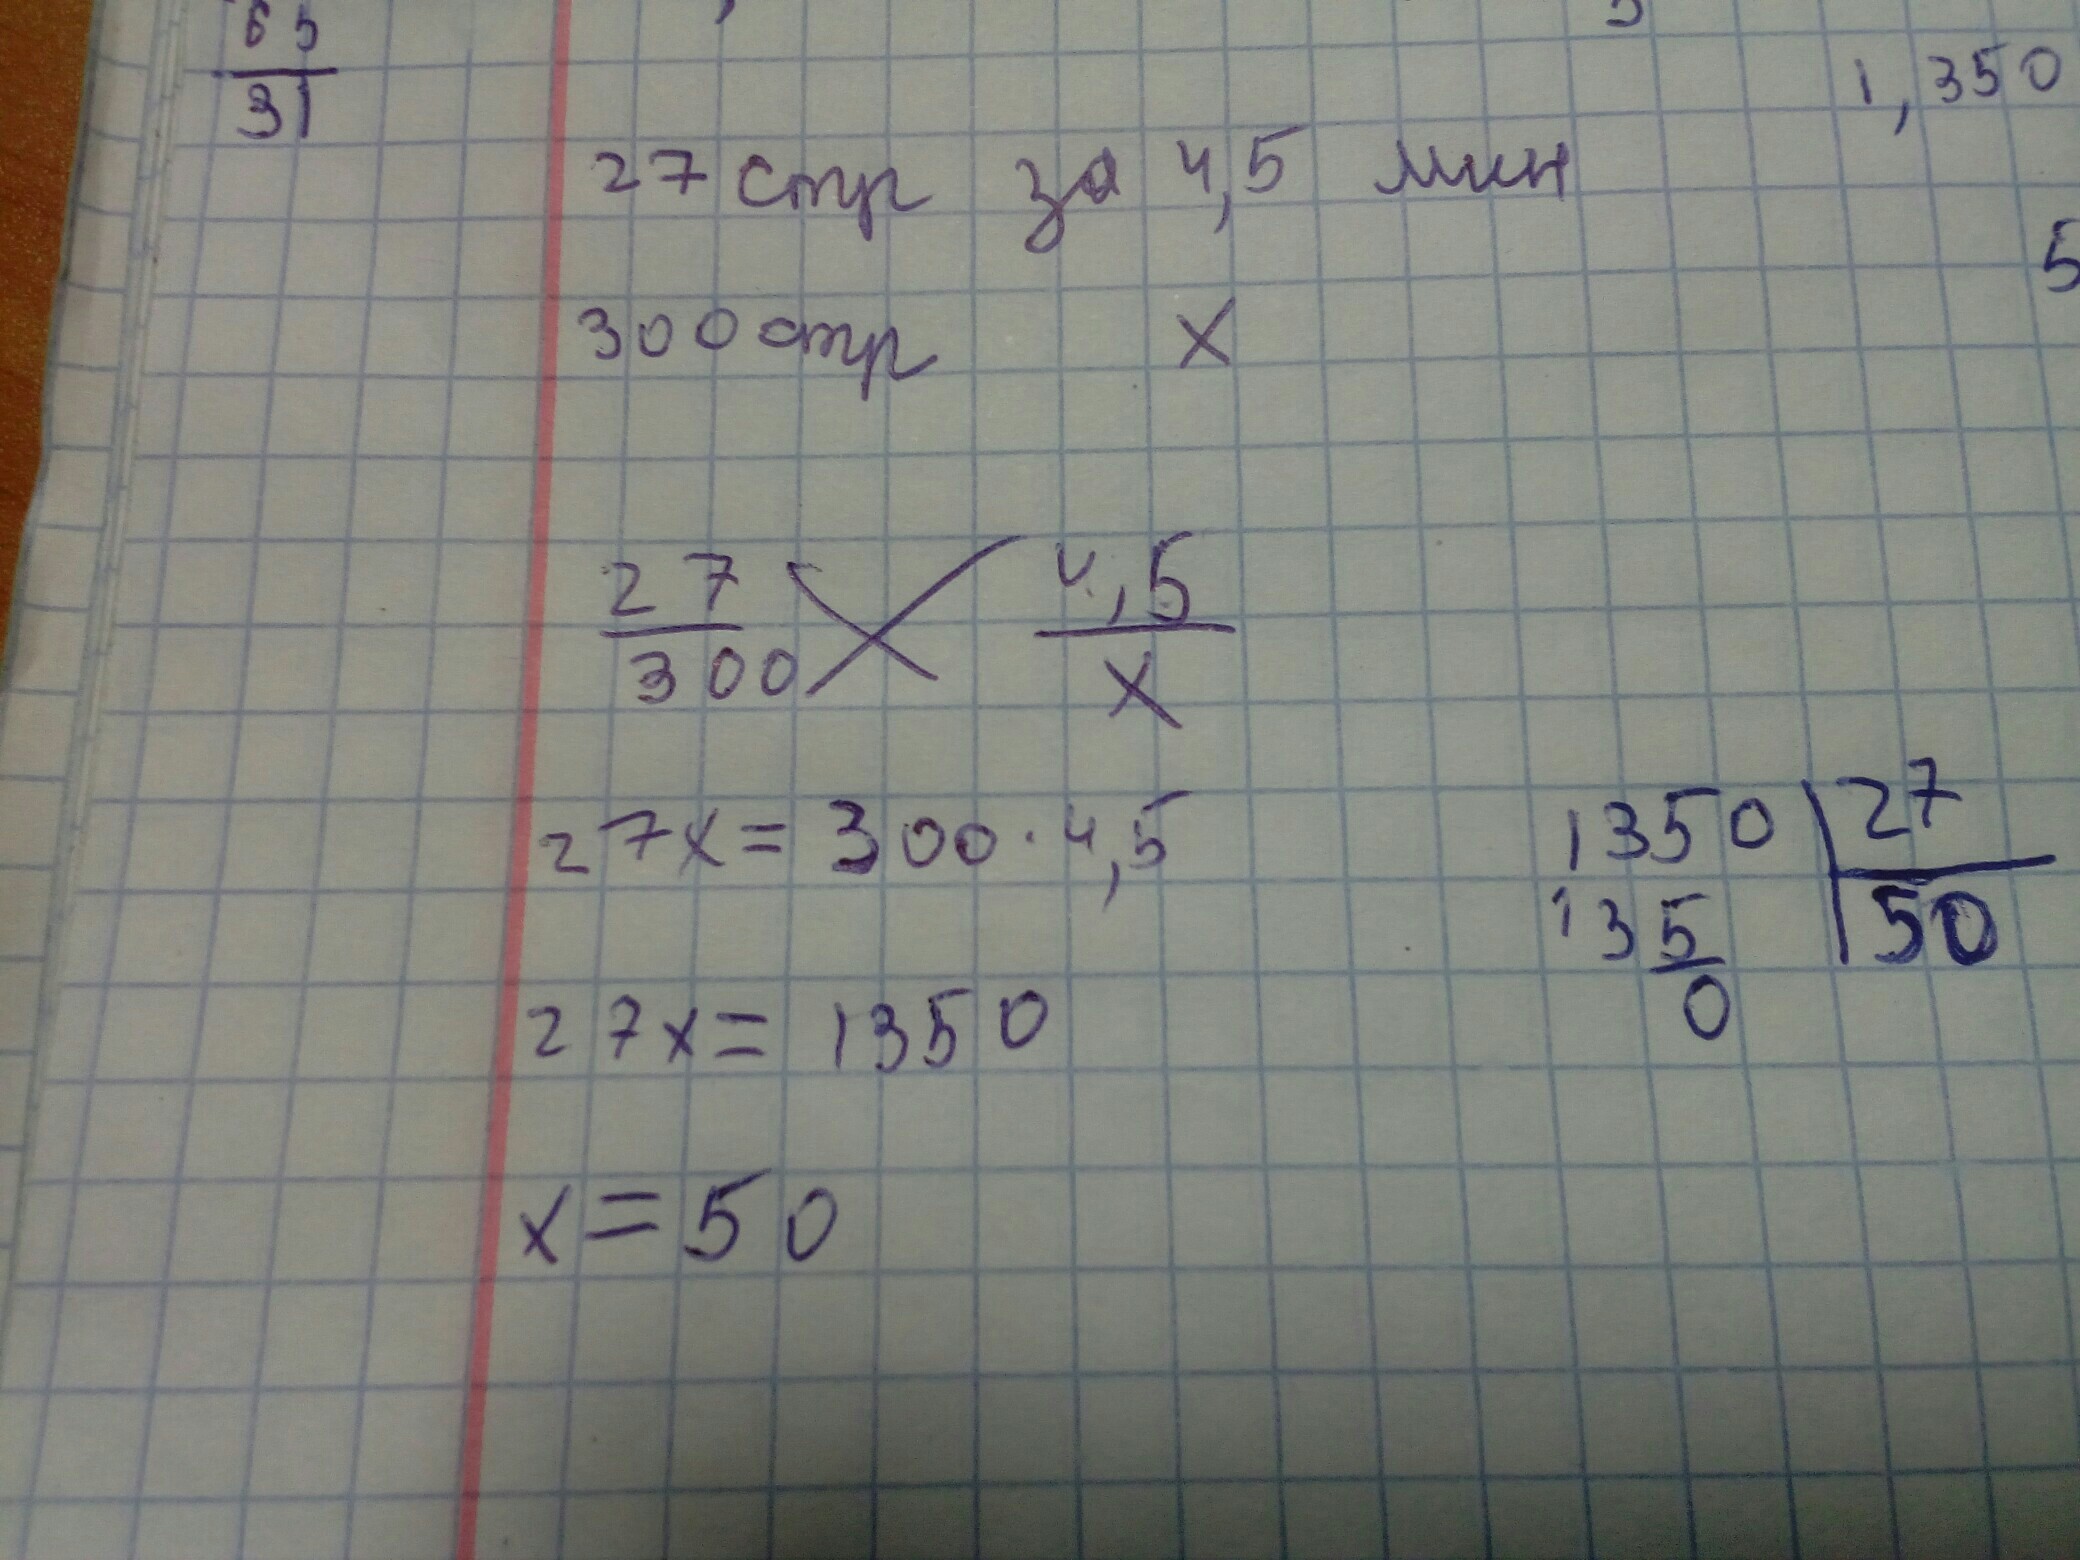 65
31
1,350
27 стр за 4,5 мин
5
300 стр x
27 4,5
300 x
27x = 300 · 4,5
1350 27
135 50
0
27x = 1350
x = 50